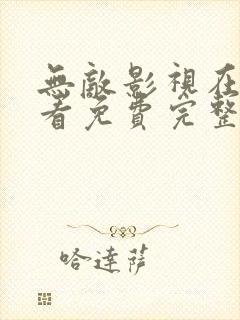 無敵影視在
看免費完整
哈達薩